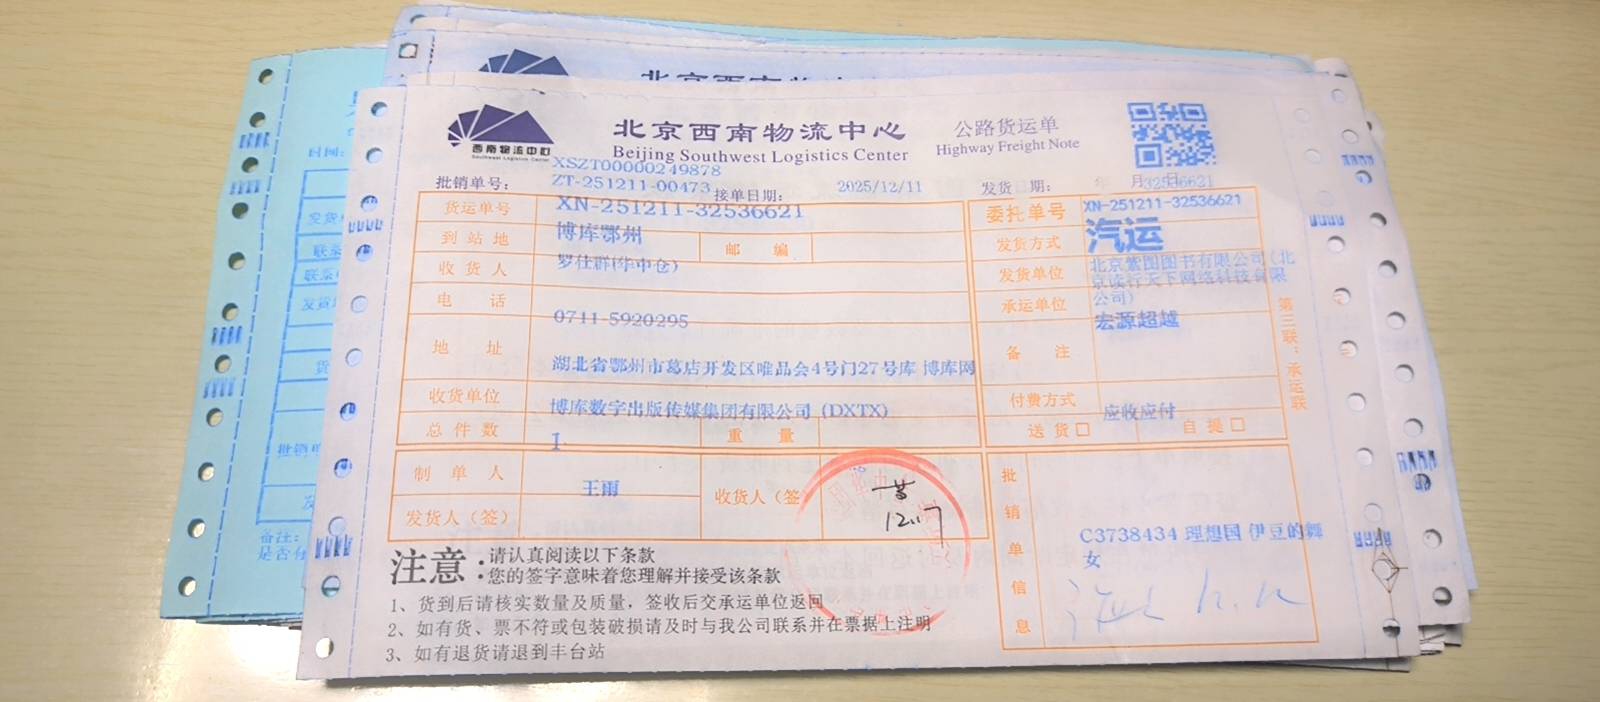 西南物流中心
Southwest Logistics Center
北京西南物流中心
公路货运单
Beijing Southwest Logistics Center
Highway Freight Note
XSZT00000249878
批销单号：
ZT-251211-00473
接单日期：
2025/12/11
发货 期：
年 月 日
32536621
货运单号
XN-251211-32536621
委托单号
XN-251211-32536621
到站地
博库鄂州
邮 编
发货方式
汽运
收货人
罗仕群(华中仓)
发货单位
北京紫图图书有限公司(北
京读行天下网络科技有限
公司)
电 话
0711-5920295
承运单位
宏源超越
地 址
湖北省鄂州市葛店开发区唯品会4号门27号库 博库网
备 注
收货单位
博库数字出版传媒集团有限公司 (DXTX)
付费方式
应收应付
总件数
1
重 量
送货□
自提□
第三联：承运联
制单人
王雨
收货人（签
发货人（签）
批销单信息
C3738434 理想国 伊豆的舞
女
注意：
请认真阅读以下条款
您的签字意味着您理解并接受该条款
1、货到后请核实数量及质量，签收后交承运单位返回
2、如有货、票不符或包装破损请及时与我公司联系并在票据上注明
3、如有退货请退到丰台站